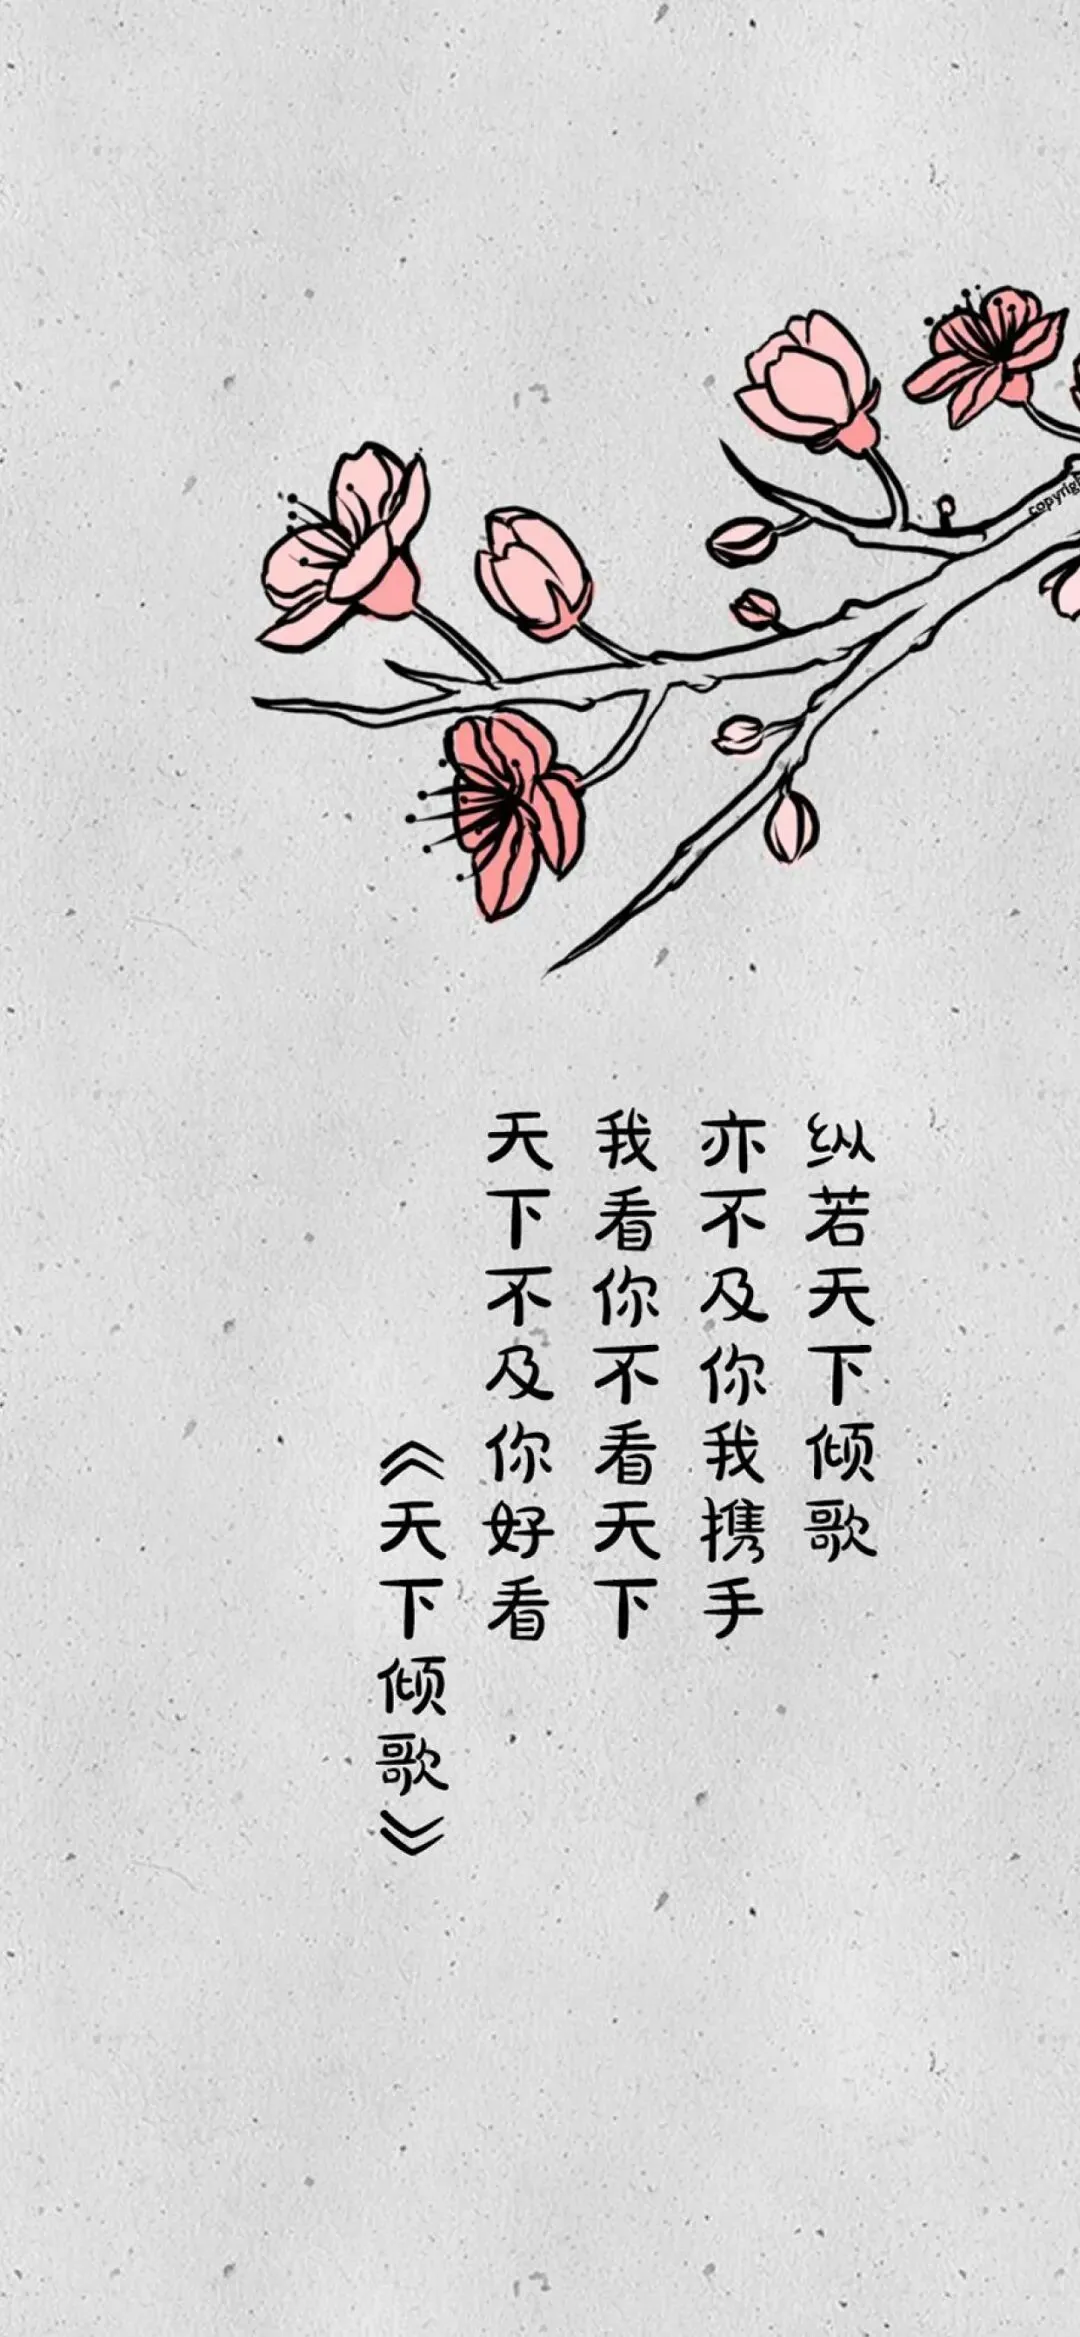 copyrigh
纵若天下倾歌
亦不及你我携手
我看你不看天下
天下不及你好看
《天下倾歌》